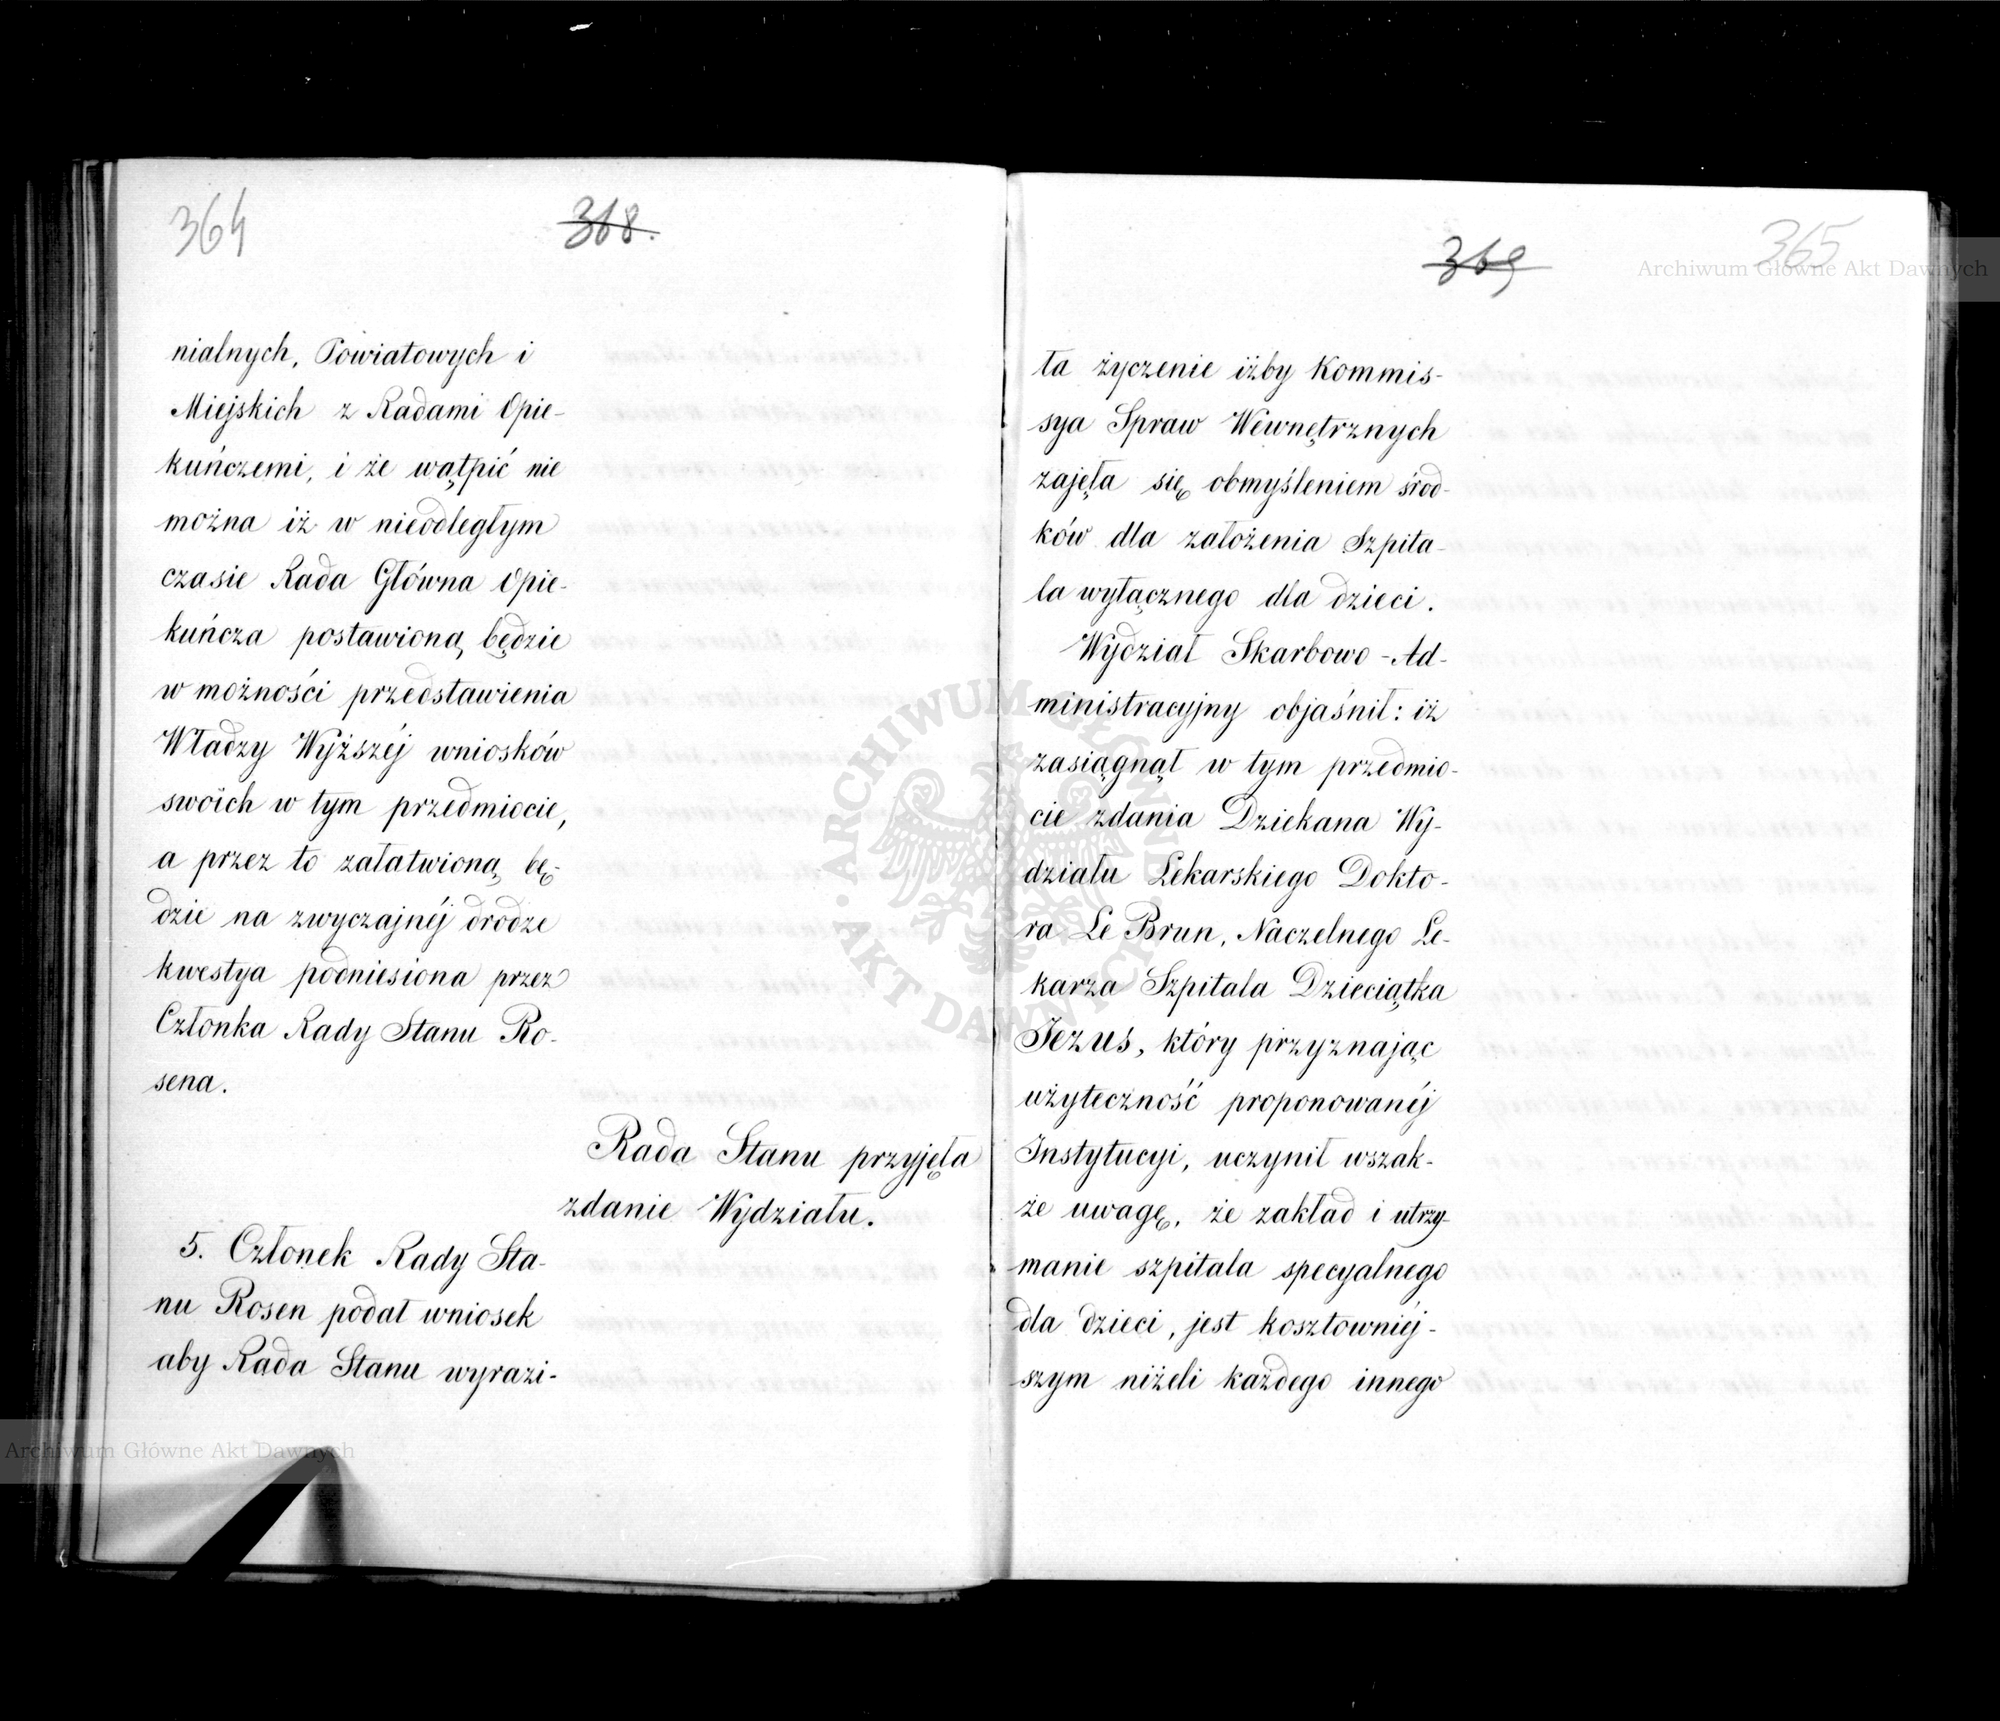 364
368.
nialnych, Powiatowych i
Miejskich z Radami Opie-
kuńczemi, i że wątpić nie
można iż w nieodległym
czasie Rada Główna Opie-
kuńcza postawioną będzie
w możności przedstawienia
Władzy Wyższéj wniosków
swoich w tym przedmiocie,
a przez to załatwioną bę-
dzie na zwyczajnéj drodze
kwestya podniesiona przez
Członka Rady Stanu Ro-
sena.
Rada Stanu przyjęła
zdanie Wydziału.
5. Członek Rady Sta-
nu Rosen podał wniosek
aby Rada Stanu wyrazi-
369
365
ła życzenie iżby Kommis-
sya Spraw Wewnętrznych
zajęła się obmyśleniem środ-
ków dla założenia Szpita-
la wyłącznego dla dzieci.
Wydział Skarbowo-Ad-
ministracyjny objaśnił: iż
zasiągnął w tym przedmio-
cie zdania Dziekana Wy-
działu Lekarskiego Dokto-
ra Le Brun, Naczelnego Le-
karza Szpitala Dzieciątka
Jezus, który przyznając
użyteczność proponowanéj
Instytucyi, uczynił wszak-
że uwagę, że zakład i utrzy-
manie szpitala specyalnego
dla dzieci, jest kosztowniéj-
szym niżeli każdego innego
Archiwum Główne Akt Dawnych
Archiwum Główne Akt Dawnych
ARCHIWUM GŁÓWNE AKT DAWNYCH